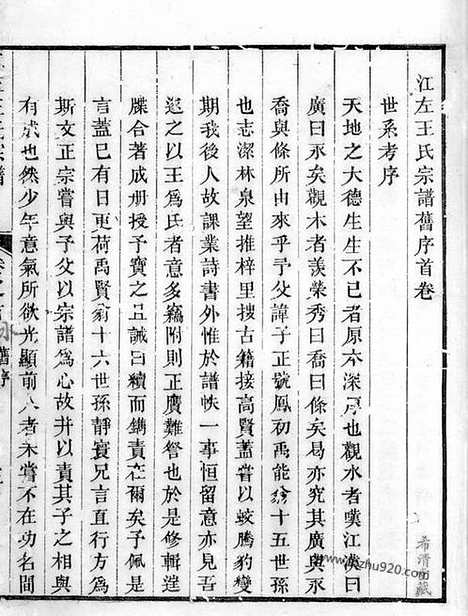 江左王氏宗譜舊序首卷
世系考序
天地之大德生生不已者原本深厚也觀水者嘆江漢曰
廣曰永矣觀木者羨榮秀曰喬曰條矣曷亦究其廣與永
喬與條所由來乎予父諱子正號鳳初禹能翁十五世孫
也志潔林泉望推梓里搜古籍接高賢蓋嘗以蛟騰豹變
期我後人故課業詩書外於譜帙一事恒留意亦見
迩之以王爲氏者意多竊附則正贋難詧也於是修輯達
牒合著成册授予寶之且誡曰續而鐫責在爾矣予佩是
言蓋已有日更荷禹賢翁十六世孫靜寰兄言直行方
斯文正宗嘗與予父以宗譜爲心故并以責其子之相與
有成也然少年意氣所欲光顯前人者未嘗不在功名間
舊序
希清齋藏
zhu920.com